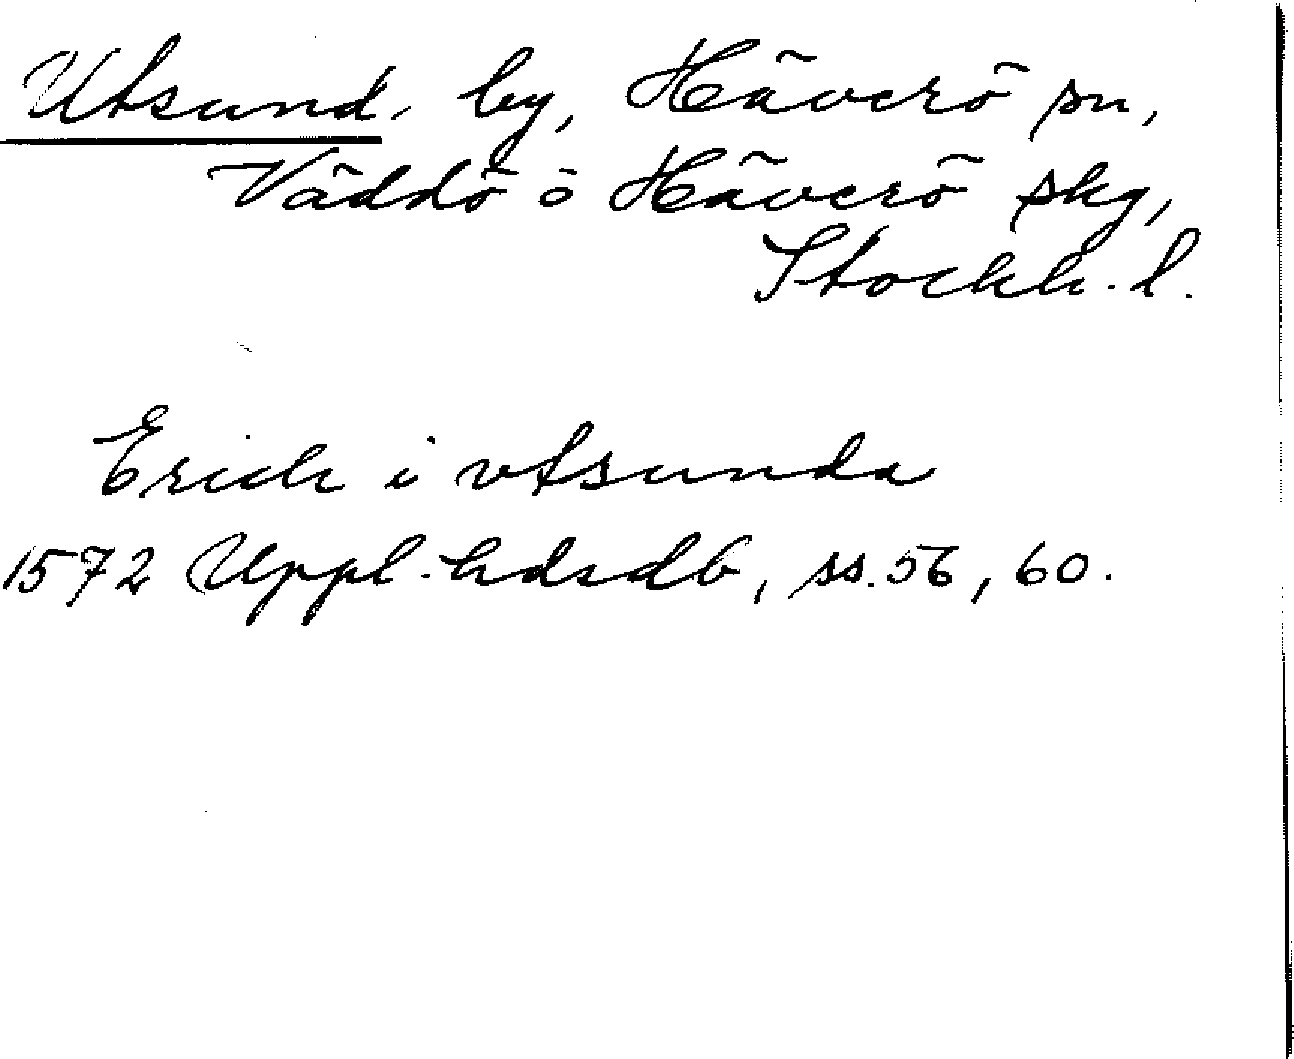 Utsund, by, Häverö sn,
Väddö o Häverö skg,
Stockh. l.
Erich i vtsunda
1572 Uppl. hdr db, ss. 56, 60.